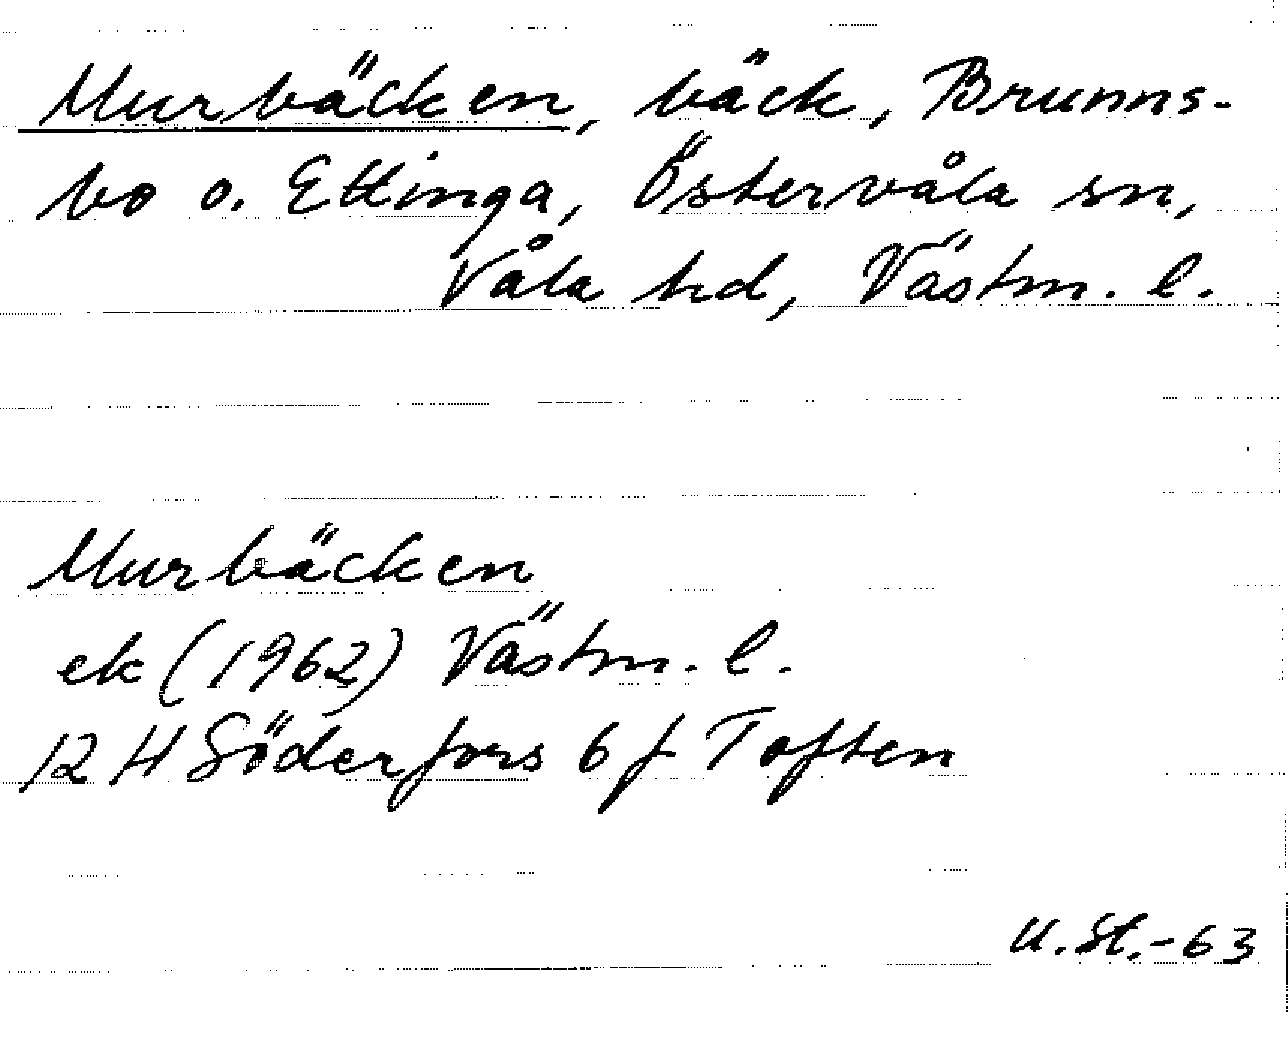 Murbäcken, bäck, Brunns-
bo o. Ettinga, Östervåla sn,
Våla hd, Västm. l.
Murbäcken
ek (1962) Västm. l.
12 H Söderfors 6 f Toften
U.St.-63